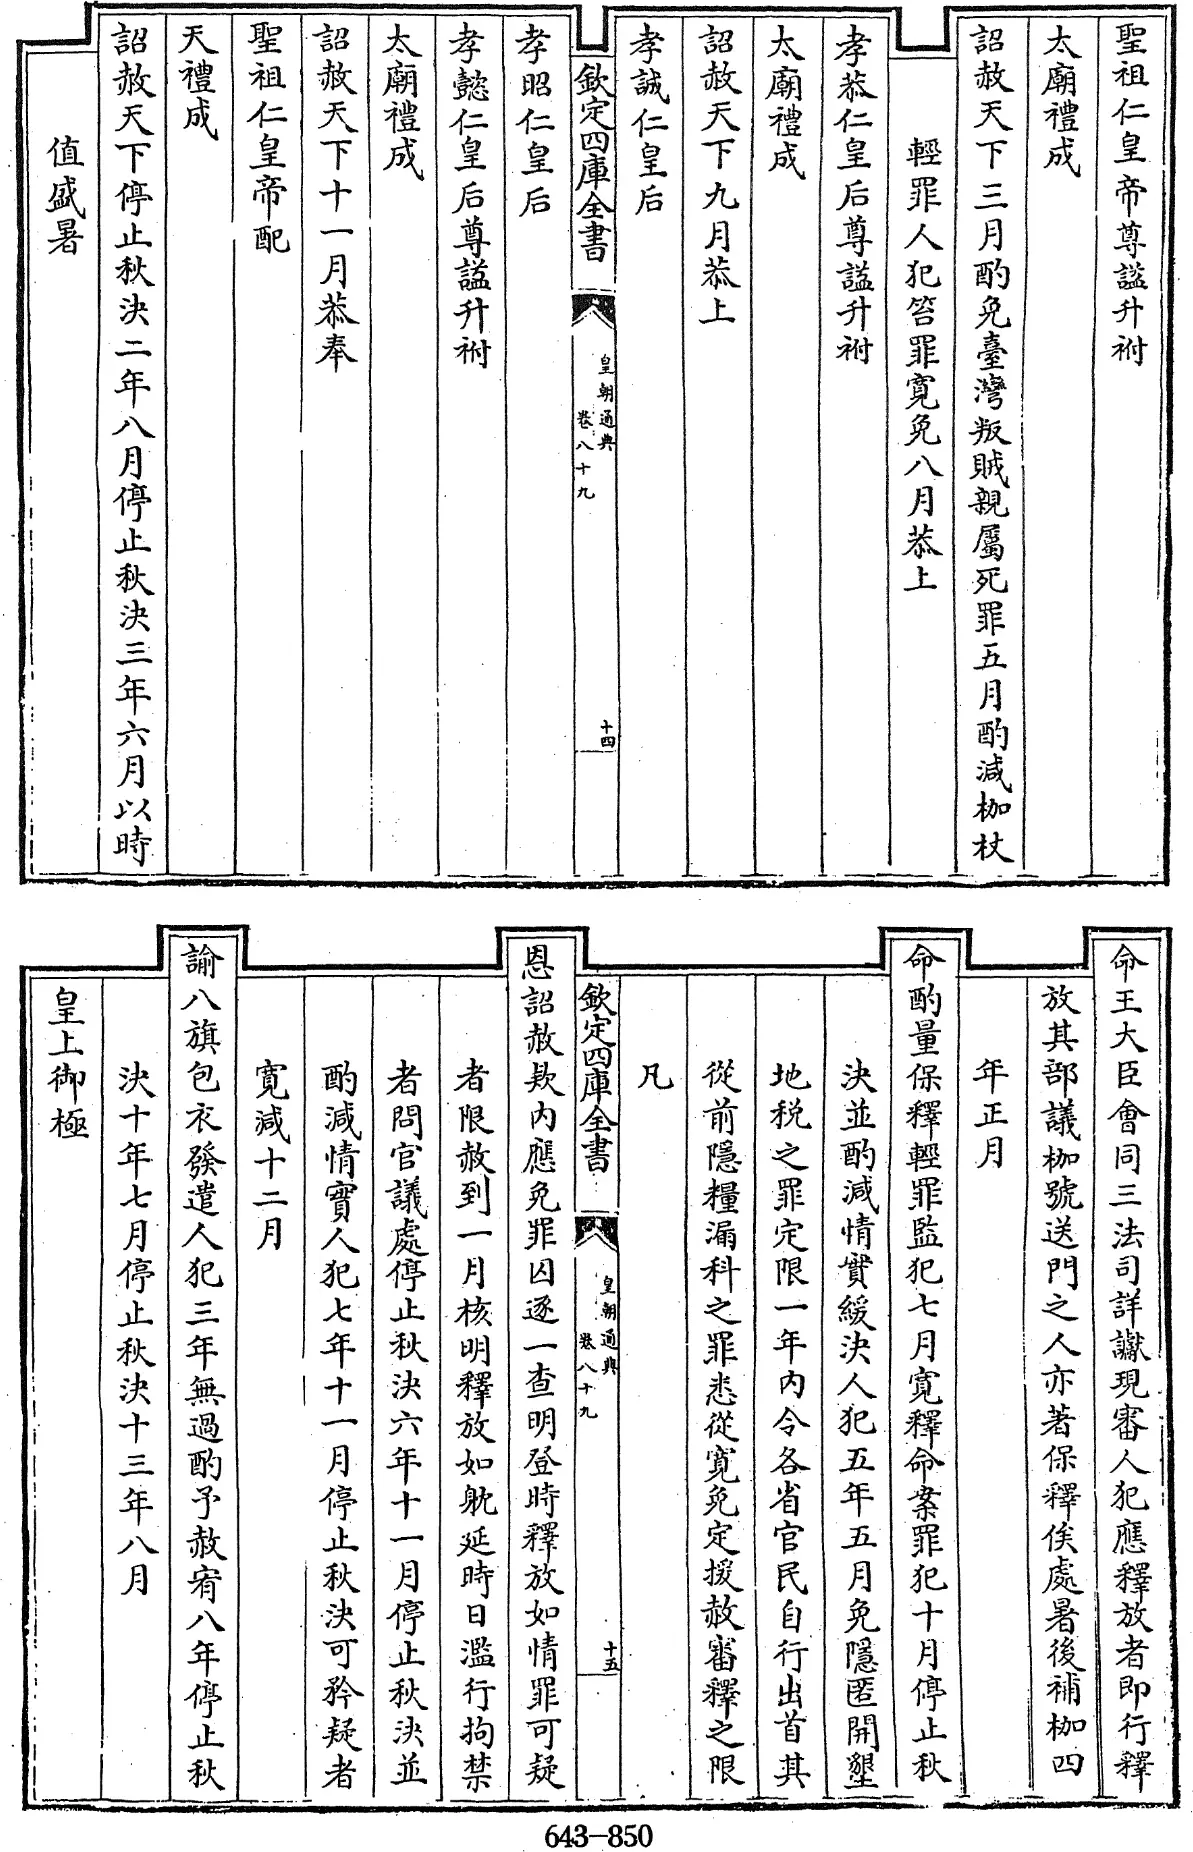 聖祖仁皇帝尊諡升祔
太廟禮成
詔赦天下三月酌免臺灣叛賊親屬死罪五月酌減枷杖
輕罪人犯笞罪寬免八月恭上
孝恭仁皇后尊諡升祔
太廟禮成
詔赦天下九月恭上
孝誠仁皇后
欽定四庫全書
皇朝通典
卷八十九
十四
孝昭仁皇后
孝懿仁皇后尊諡升祔
太廟禮成
詔赦天下十一月恭奉
聖祖仁皇帝配
天禮成
詔赦天下停止秋決二年八月停止秋決三年六月以時
值盛暑
命王大臣會同三法司詳讞現審人犯應釋放者即行釋
放其部議枷號送門之人亦著保釋俟處暑後補枷四
年正月
命酌量保釋輕罪監犯七月寬釋命案罪犯十月停止秋
決並酌減情實緩決人犯五年五月免隱匿開墾
地稅之罪定限一年內令各省官民自行出首其
從前隱糧漏科之罪悉從寬免定援赦審釋之限
凡
欽定四庫全書
皇朝通典
卷八十九
十五
恩詔赦款內應免罪囚逐一查明登時釋放如情罪可疑
者限赦到一月核明釋放如躭延時日濫行拘禁
者問官議處停止秋決六年十一月停止秋決並
酌減情實人犯七年十一月停止秋決可矜疑者
寬減十二月
諭八旗包衣發遣人犯三年無過酌予赦宥八年停止秋
決十年七月停止秋決十三年八月
皇上御極
643-850